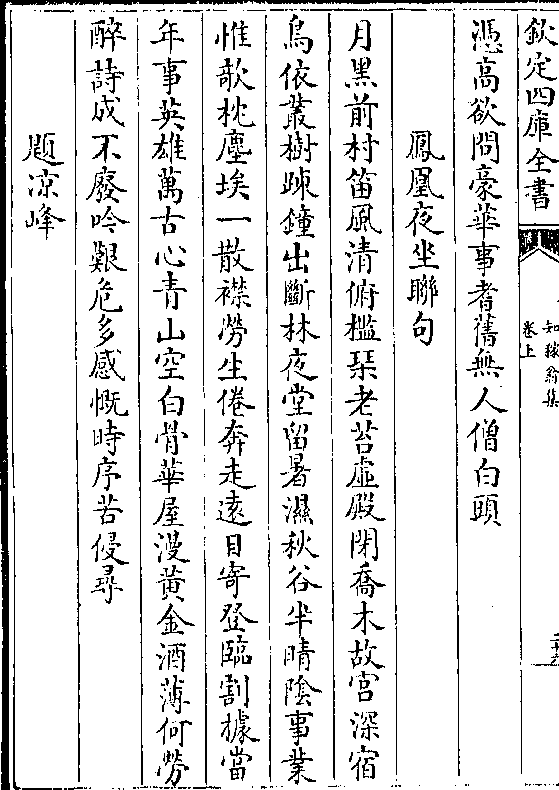 欽定四庫全書
卷上
憑高欲問豪華事耆舊無人僧白頭
鳳凰夜坐聯句
月黑前村笛風清俯檻琴老苔虛殿閉喬木故宮深宿
鳥依叢樹踈鐘出斷林夜堂留暑濕秋谷半晴陰事業
惟欹枕塵埃一散襟勞生倦奔走遠目寄登臨割據當
年事英雄萬古心青山空白骨華屋漫黃金酒薄何勞
醉詩成不廢吟艱危多感慨時序苦侵尋
题凉峰